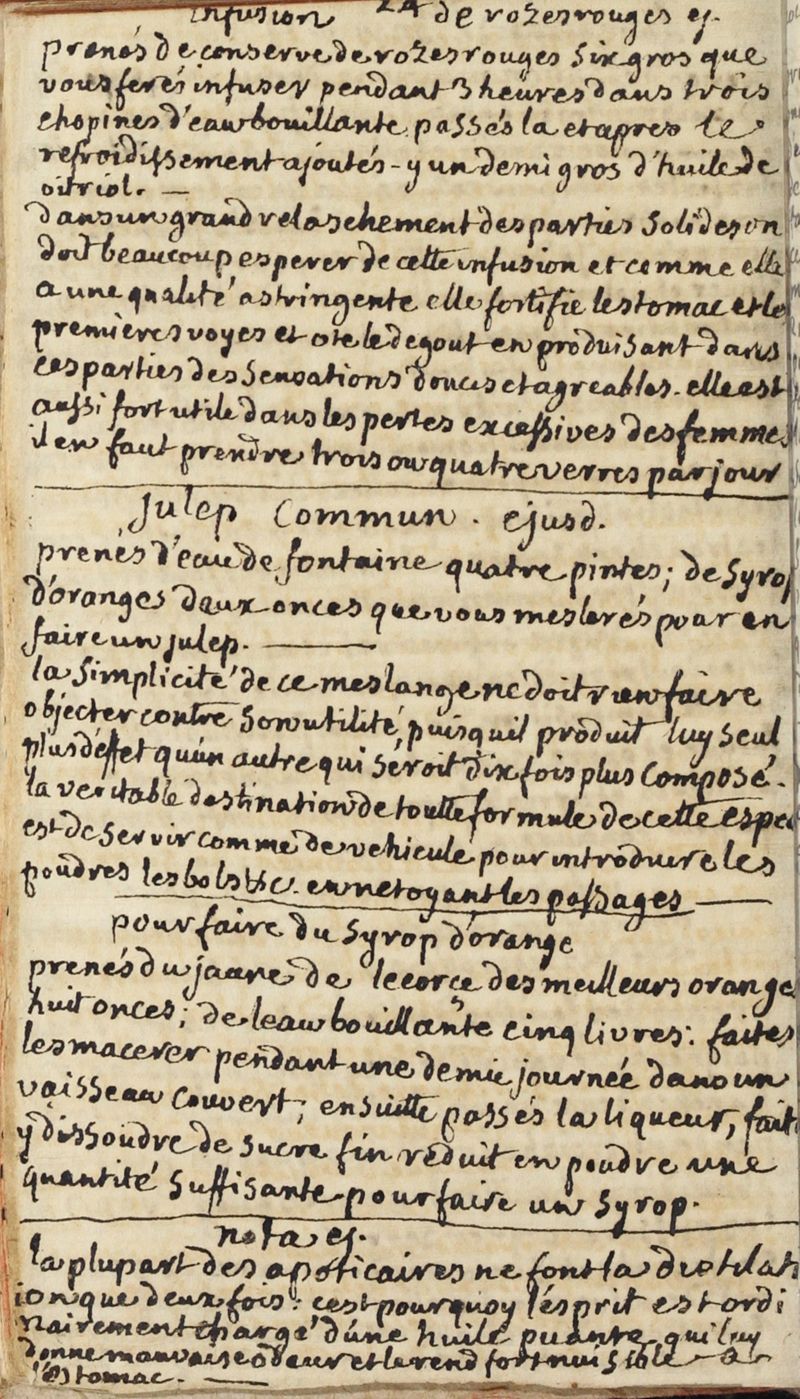 infusion 24 de rozes rouges ej.
prenés de conserve de rozes rouges six gros que
vous ferés infuser pendant 3 heures dans trois
chopines d'eau bouillante passés la et apres le
refroidissement ajoutés-y un demi gros d'huile de
vitriol. —
dans un grand relaschement des parties solides on
doit beaucoup esperer de cette infusion et comme elle
a une qualité astringente elle fortifie lestomac et les
premieres voyes et ote le degout en produisant dans
ces parties des sensations douces et agreables. elle est
aussi fort utile dans les pertes excessives des femmes
il en faut prendre trois ou quatre verres par jour
Julep Commun. ejusd.
prenés d'eau de fontaine quatre pintes; de syrop
d'oranges deux onces que vous meslerés pour en
faire un julep. —
la simplicité de ce meslange ne doit rien faire
objecter contre son utilité, puisquil produit luy seul
plus d'effet qu'un autre qui seroit dix fois plus composé.
la veritable destination de toutte formule de cette espec
est de servir comme de vehicule pour introduire les
poudres les bols &c. en netoyant les passages —
pour faire du syrop d'orange
prenés du jaune de lecorce des meilleurs orange
huit onces; de leau bouillante cinq livres: faites
les macerer pendant une demie journée dans un
vaisseau couvert; ensuitte passés la liqueur, faite
y dissoudre de sucre fin réduit en poudre une
quantité suffisante pour faire un syrop.
nota ej.
la plupart des apoticaires ne font la distilat
ion que deux fois: cest pourquoy l'esprit est ordi
nairement chargé d'une huile puante qui luy
donne mauvaise odeur et le rend fort nuisible a
l'estomac. —